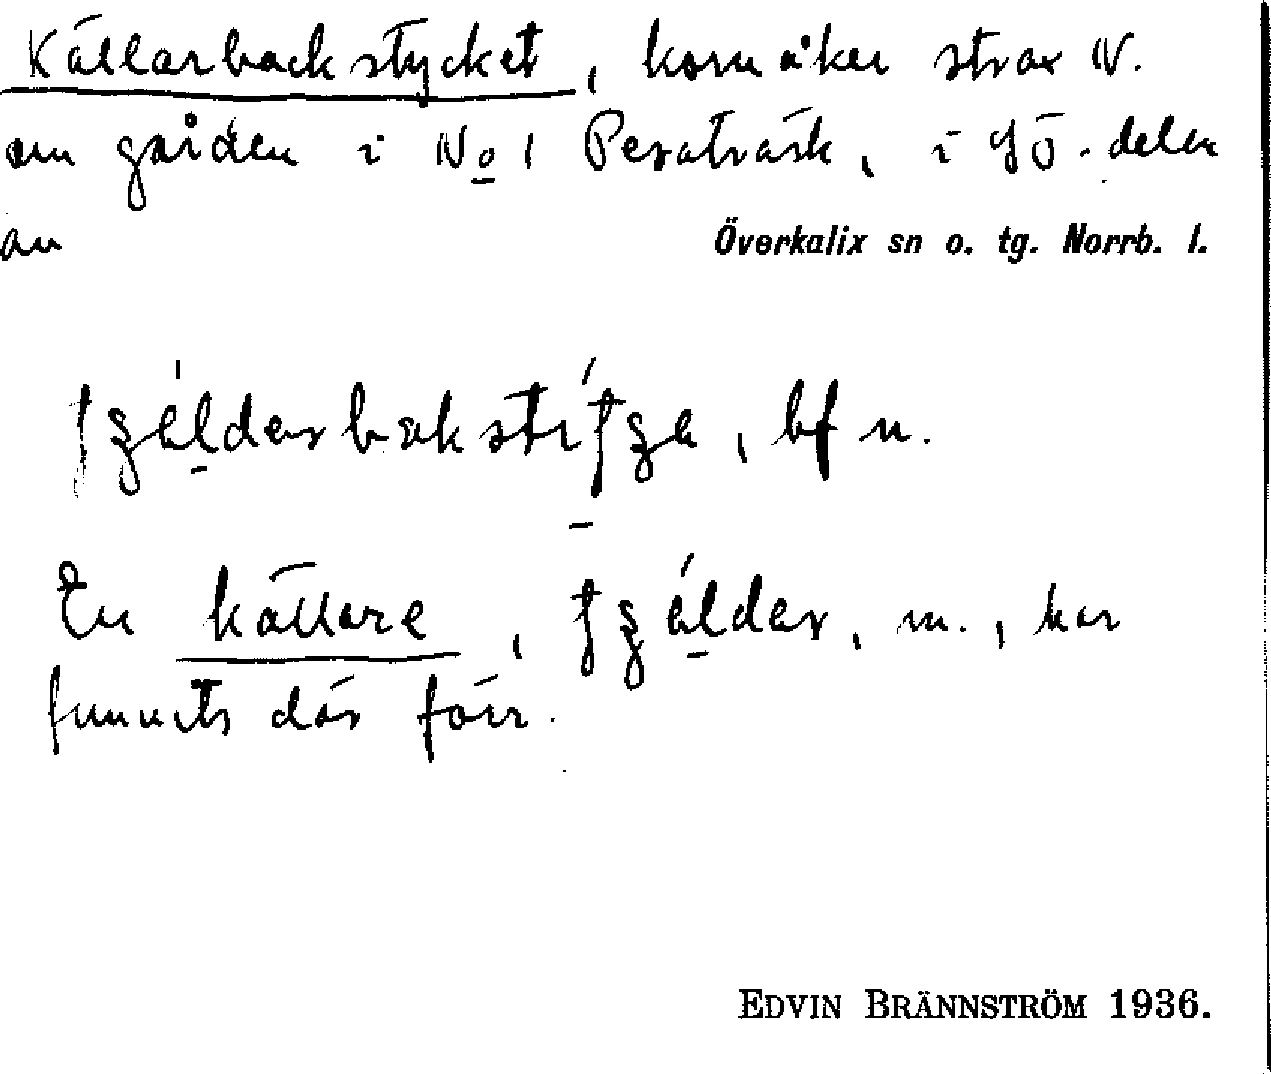 Källarbackstycket, kornåker strax N.
om gården i No 1 Pesaträsk, i SÖ. delen
av
Överkalix sn o. tg. Norrb. l.
bf n.
En källare, m., har
funnits där förr.
EDVIN BRÄNNSTRÖM 1936.